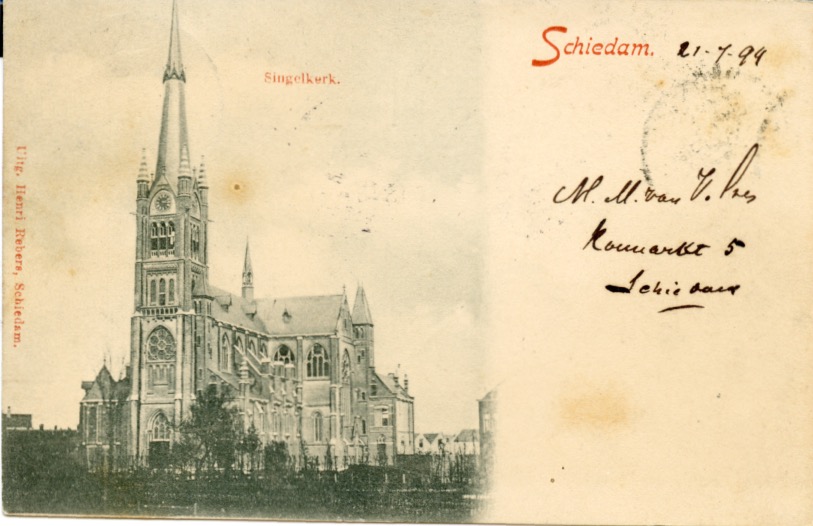 Schiedam. 21-7-99
Singelkerk.
Uitg. Henri Rebers, Schiedam.
M. M. van V.
5
Schiedam